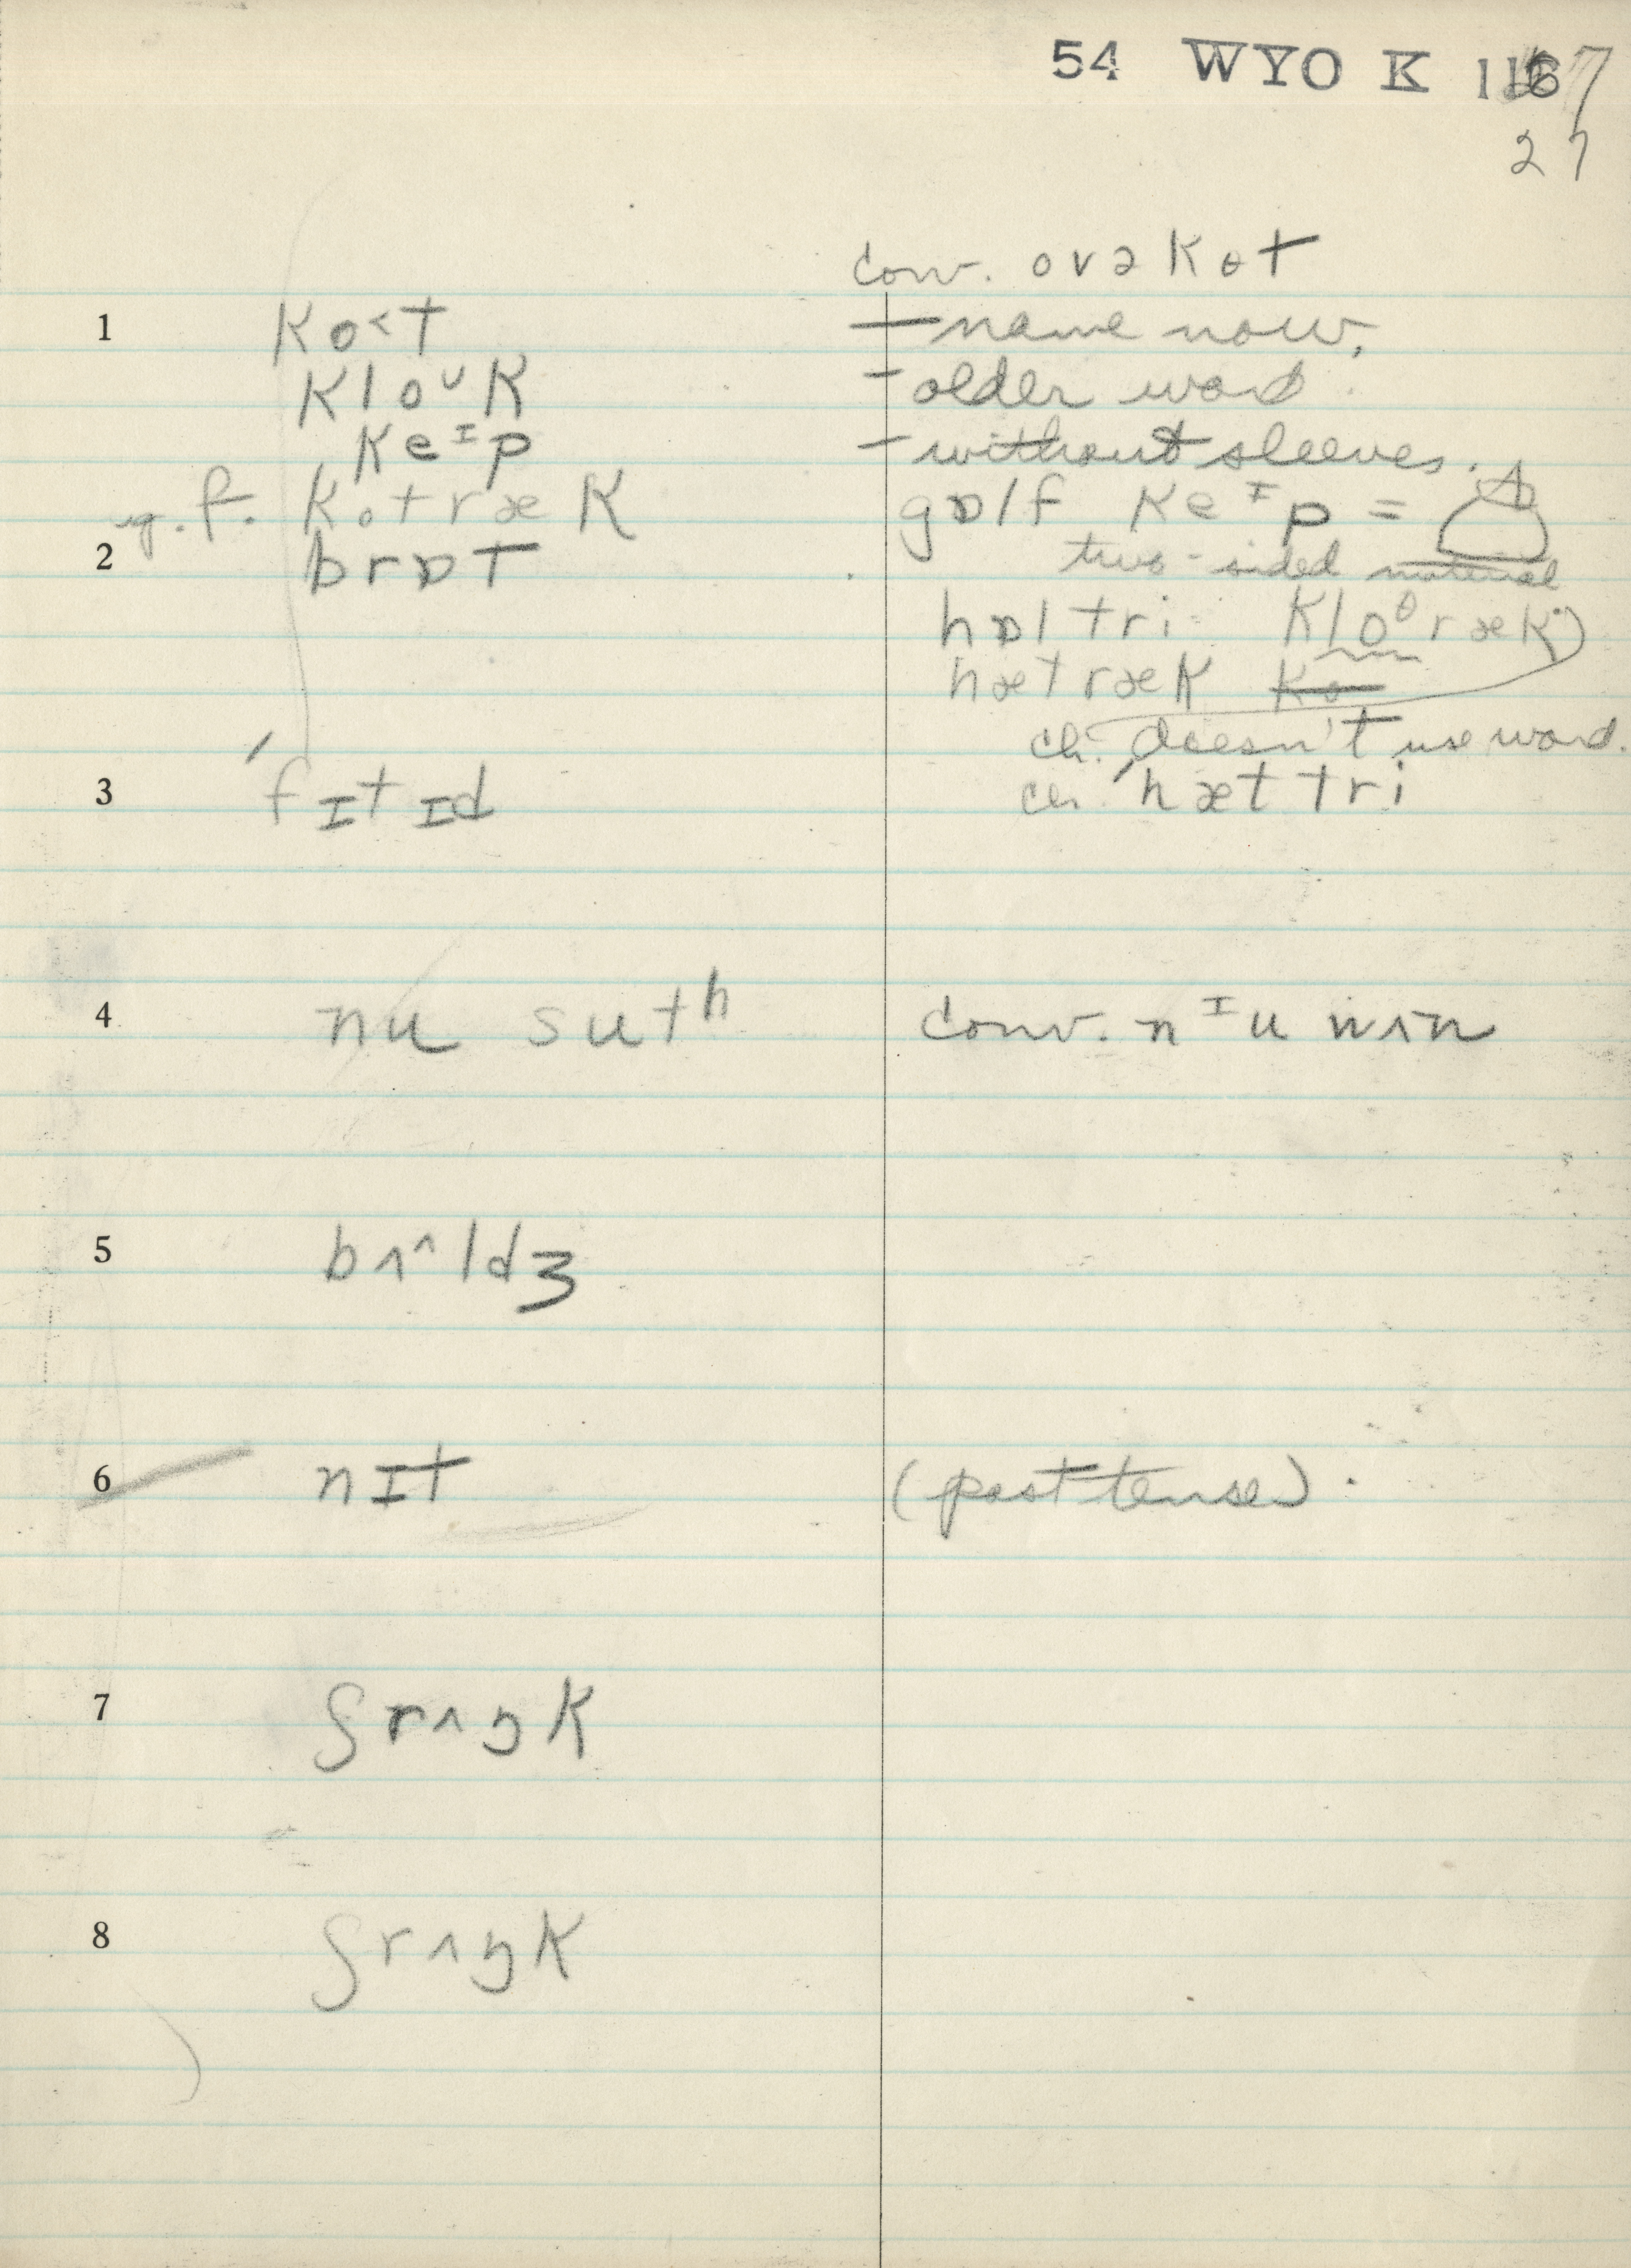 54 WYO K 1167
27
conv. ovəkot
1 ko˂t — name now,
kloᵁk - older word
keᴵp - without sleeves.
f. kotræk gɒlf keᴵp =
two-sided material
2 brɒt
hɒl tri kloᶿræk
hætræk k̶o̶
ch. doesn't use word.
3 ˈfɪtɪd ch. ˈhæt tri
4 nu sutʰ conv. nᴵu wʌn
5 bʌ^ldʒ
6 nɪt (past tense).
7 ʃrʌŋk
8 ʃrʌŋk